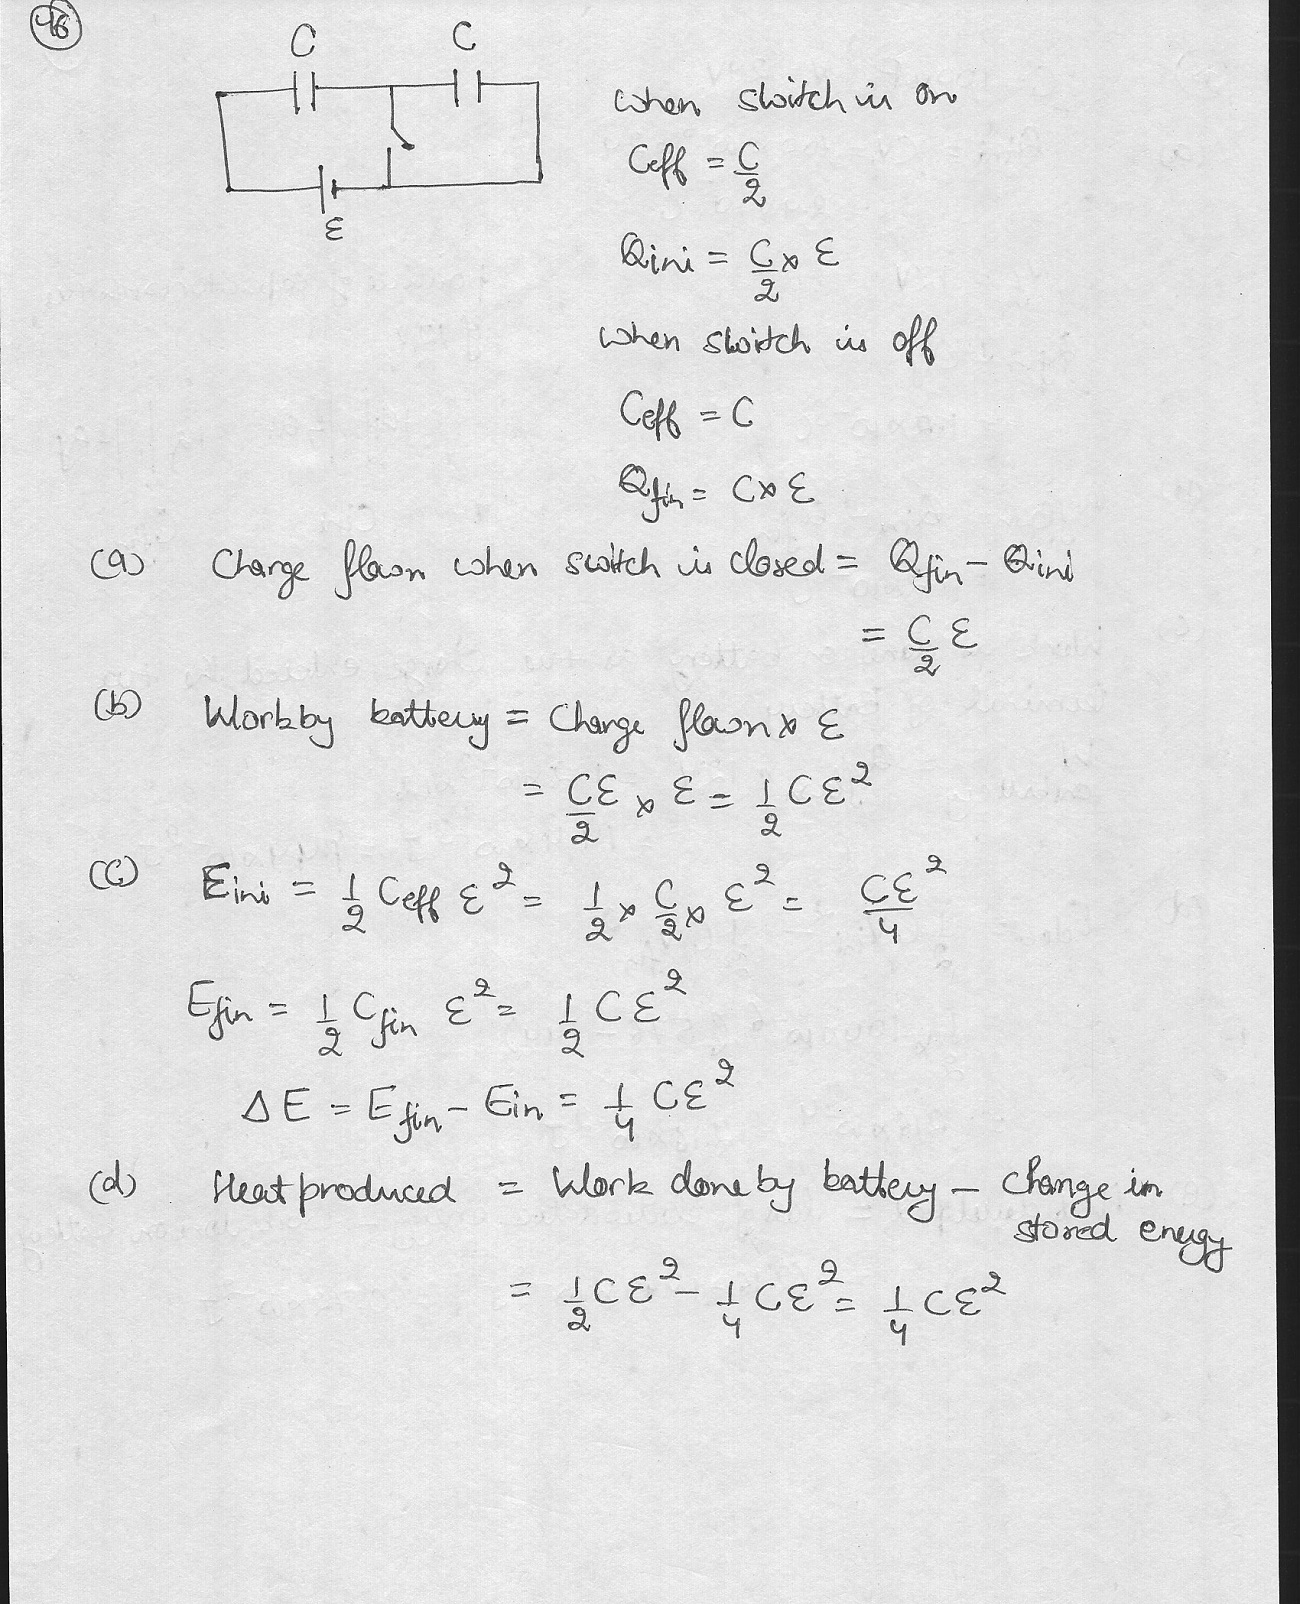 46
C C
ε
When switch is on
Ceff = C/2
Qini = C/2 × ε
When switch is off
Ceff = C
Qfin = C × ε
(a) Charge flown when switch is closed = Qfin - Qini
= C/2 ε
(b) Work by battery = Charge flown × ε
= Cε/2 × ε = 1/2 Cε²
(c) Eini = 1/2 Ceff ε² = 1/2 × C/2 × ε² = Cε²/4
Efin = 1/2 Cfin ε² = 1/2 Cε²
ΔE = Efin - Ein = 1/4 Cε²
(d) Heat produced = Work done by battery - Change in
stored energy
= 1/2 Cε² - 1/4 Cε² = 1/4 Cε²